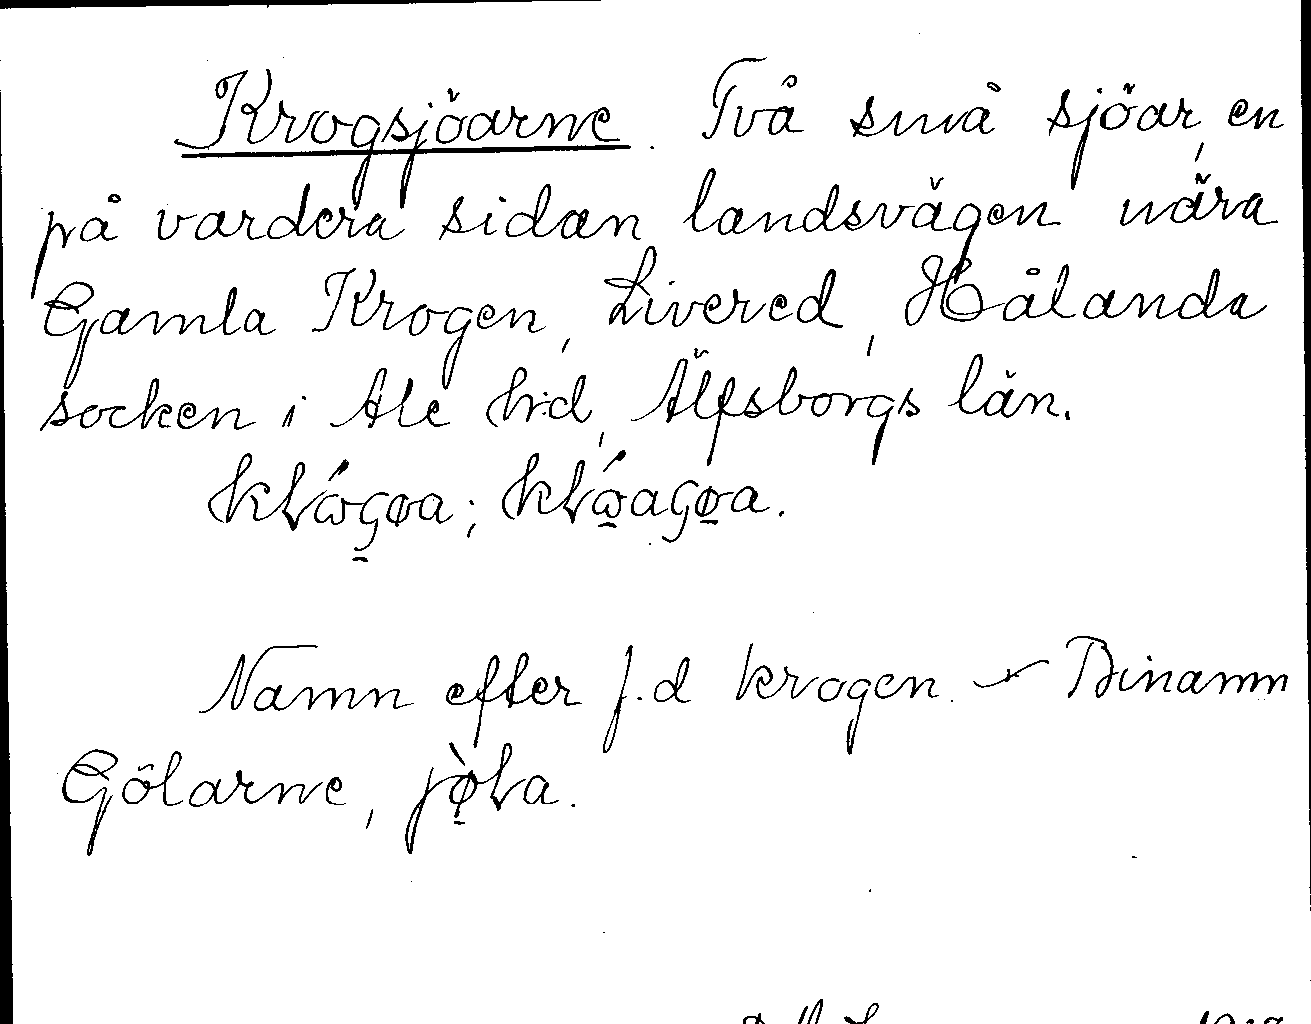 Krogsjöarne. Två små sjöar, en
på vardera sidan landsvägen nära
Gamla Krogen, Livered, Hålanda
socken i Ale hd, Älfsborgs län.
Namn efter f.d krogen. – Binamn
Gölarne,